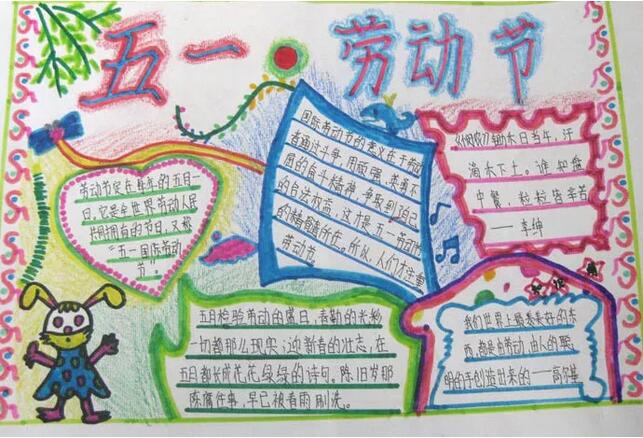 五一 劳动节
劳动节定在每年的五月一
日。它是全世界劳动人民
共同拥有的节日，又称
“五一国际劳动
节”。
国际劳动节的意义在于劳动
者通过斗争，用顽强、英勇不
屈的奋斗精神，争取到自己
的合法权益，这才是五一劳动节
的精髓所在。所以，人们才注重
劳动节。
《悯农》锄禾日当午，汗
滴禾下土。谁知盘
中餐，粒粒皆辛苦
——李绅
五月检验劳动的盛日，春勤的光彩
一切都那么现实；迎新春的壮志，在
五月都长成花花绿绿的诗句。陈旧岁那
陈腐往事，早已被春雨刷洗。
我们世界上最美好的东
西，都是由劳动、由人的聪
明的手创造出来的——高尔基